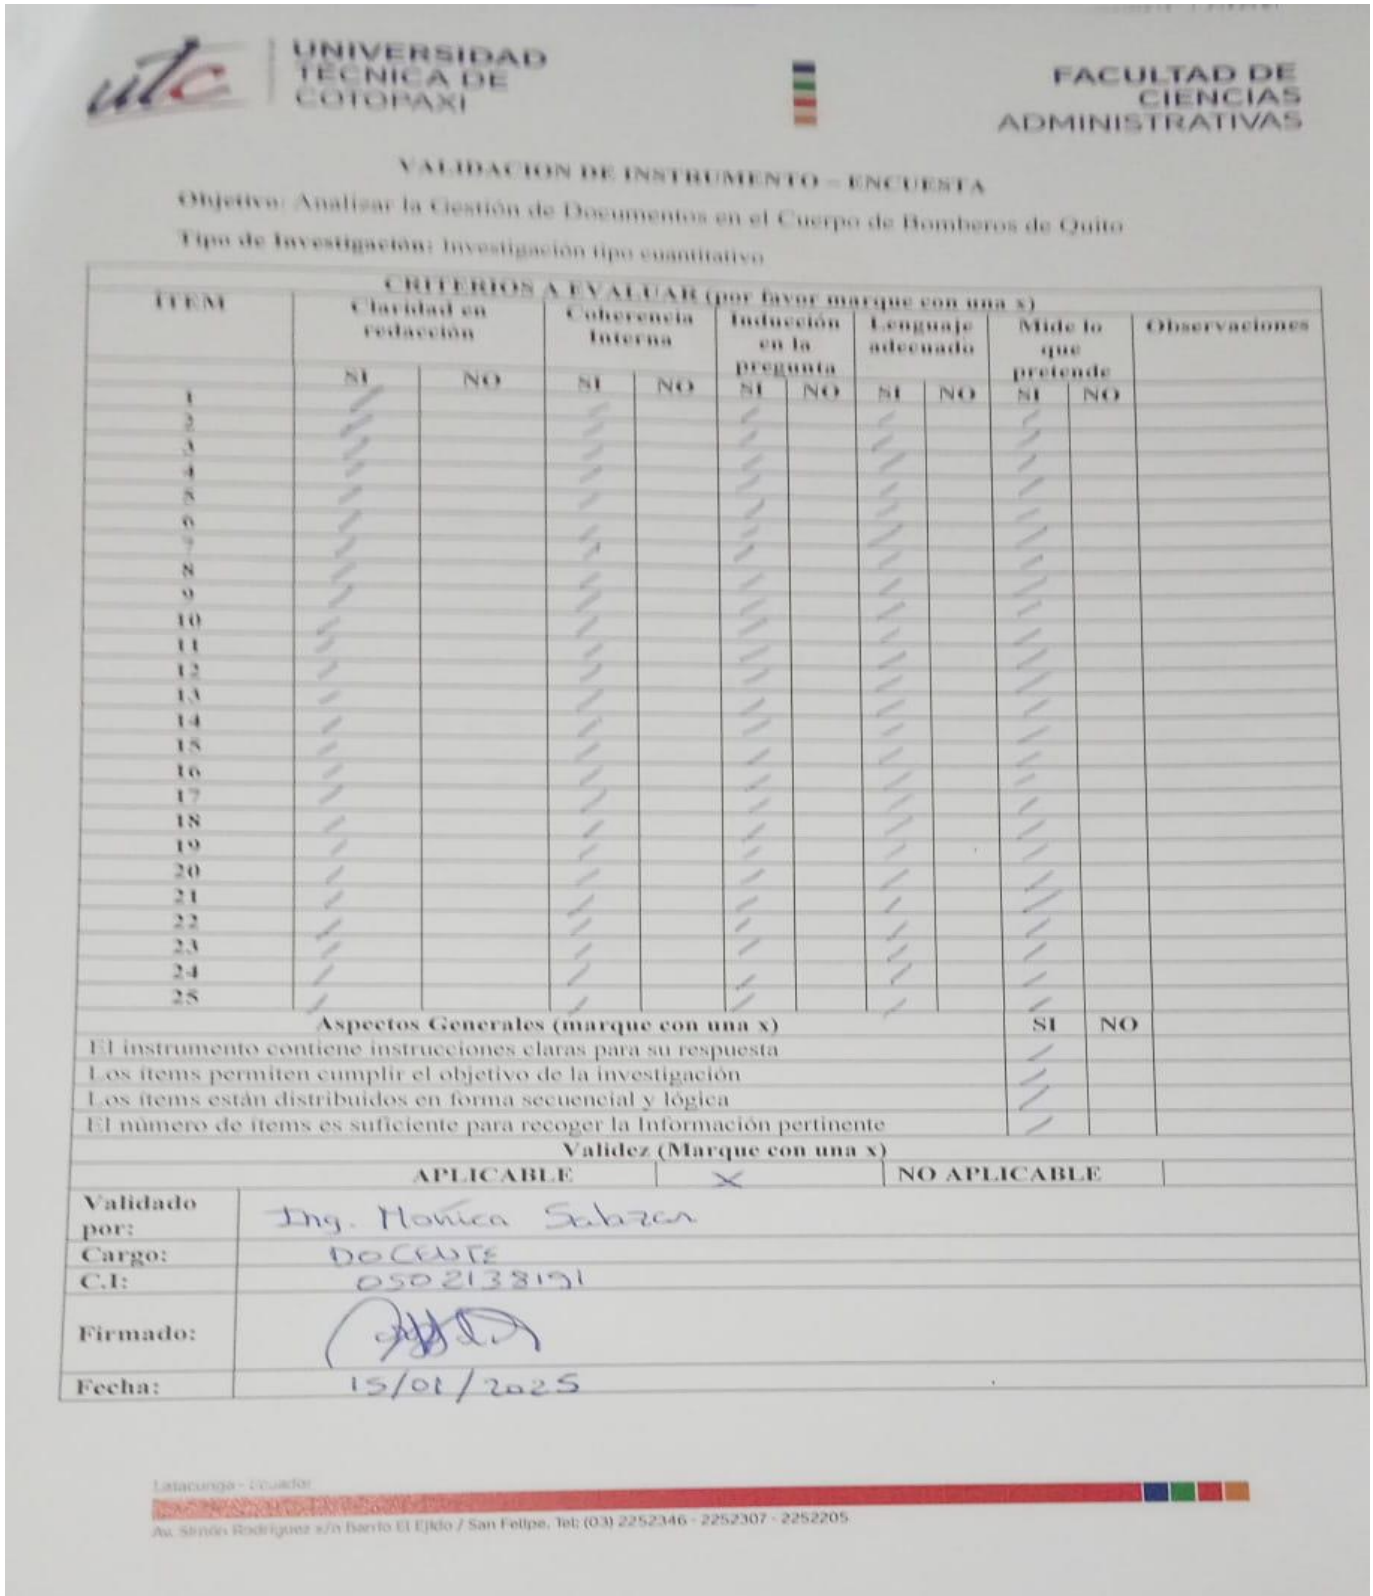 utc
UNIVERSIDAD
TÉCNICA DE
COTOPAXI
FACULTAD DE
CIENCIAS
ADMINISTRATIVAS
VALIDACION DE INSTRUMENTO – ENCUESTA
Objetivo: Analisar la Gestión de Documentos en el Cuerpo de Bomberos de Quito
Tipo de Investigación: Investigación tipo cuantitativo
CRITERIOS A EVALUAR (por favor marque con una x)
ÍTEM Claridad en redacción Coherencia Interna Inducción en la pregunta Lenguaje adecuado Mide lo que pretende Observaciones
SI NO SI NO SI NO SI NO SI NO
1
2
3
4
5
6
7
8
9
10
11
12
13
14
15
16
17
18
19
20
21
22
23
24
25
Aspectos Generales (marque con una x) SI NO
El instrumento contiene instrucciones claras para su respuesta
Los ítems permiten cumplir el objetivo de la investigación
Los ítems están distribuidos en forma secuencial y lógica
El número de ítems es suficiente para recoger la Información pertinente
Validez (Marque con una x)
APLICABLE X NO APLICABLE
Validado por: Ing. Monica Salazar
Cargo: DOCENTE
C.I: 0502138191
Firmado:
Fecha: 15/01/2025
Latacunga - Ecuador
Av. Simón Rodríguez s/n Barrio El Ejido / San Felipe. Tel: (03) 2252346 - 2252307 - 2252205